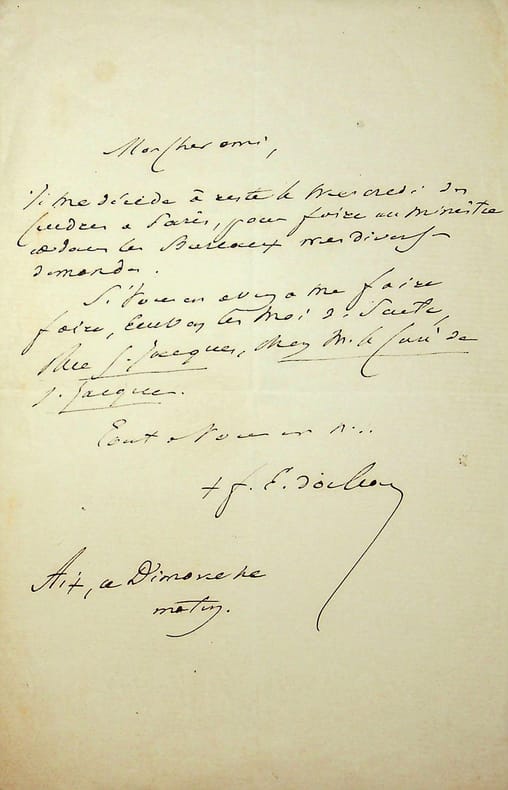 Mon Cher ami,
Je me décide à rester le Mercredi des
Cendres à Paris, pour faire au Ministère
et dans les Bureaux mes diverses
demandes.
Si vous en avez à me faire
faire, envoyez les moi de suite,
Rue S. Jacques, chez M. le Curé de
S. Jacques.
Tout à Vous en N...
+ f. E. d'orléans
Aix, ce Dimanche
matin.